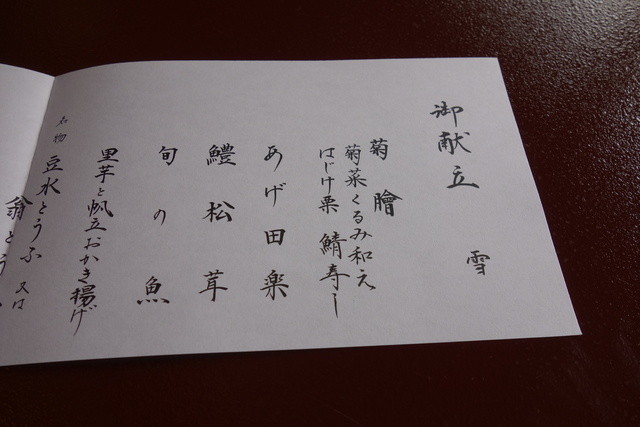 御献立
雪
菊膾
菊菜くるみ和え
はじけ栗 鯖寿し
あげ田楽
鱧松茸
旬の魚
里芋と帆立おかき揚げ
名物 豆水とうふ
翁とうふ 又は